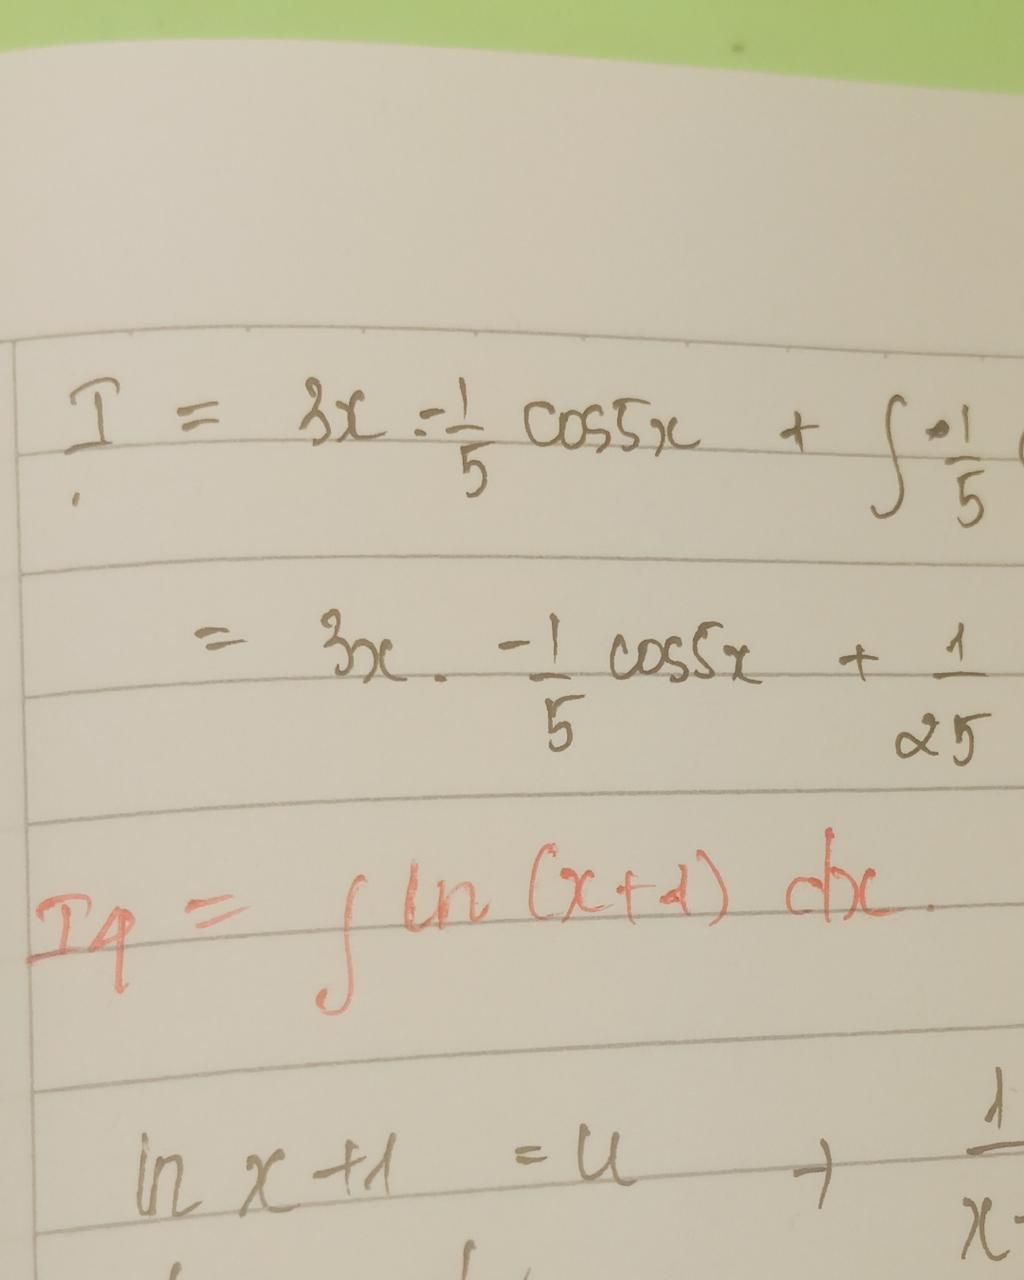 I = 3x . -1/5 cos5x + ∫ -1/5
= 3x . -1/5 cos5x + 1/25
I4 = ∫ ln (x+1) dx .
ln x+1 = u → 1/x+